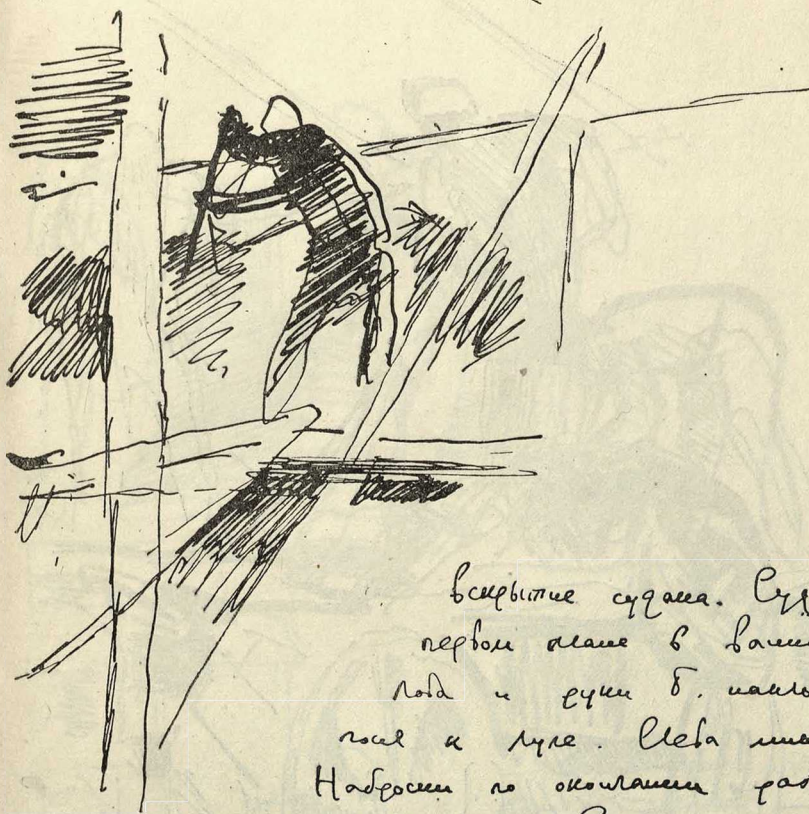 вскрытие судака. Суд
первом плане в ванн
и руки Б. накл
к лупе. Слева ми
Наброски по окончании раб